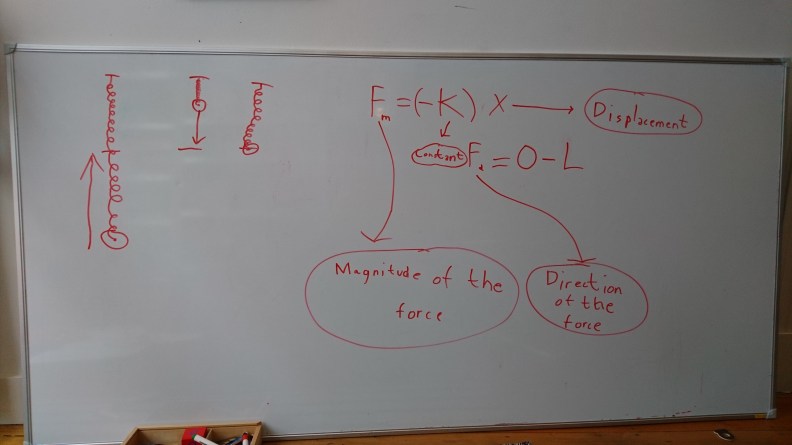 Fm = (-K) X
Displacement
Constant
Fd = O - L
Magnitude of the
force
Direction
of the
force